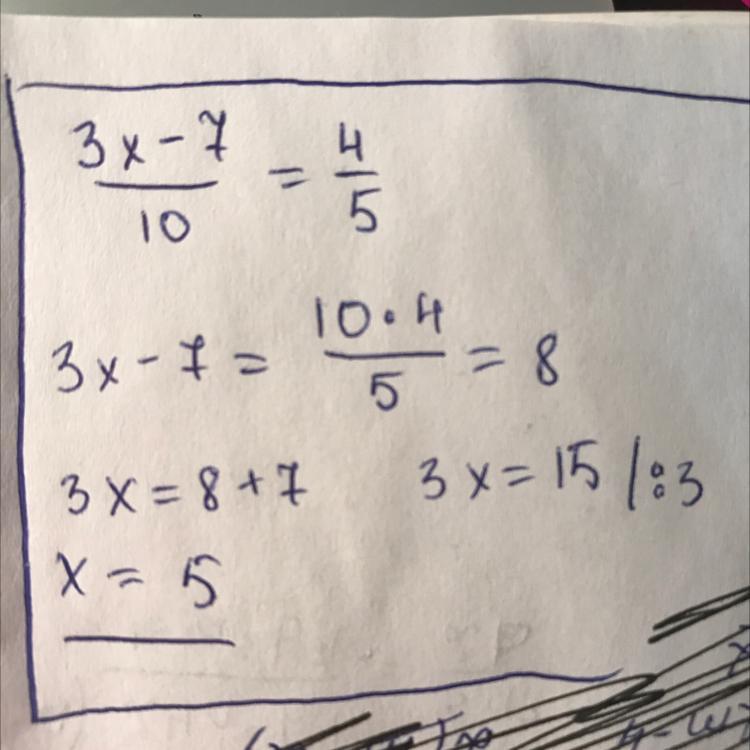 3x - 7 / 10 = 4 / 5
3x - 7 = 10 · 4 / 5 = 8
3x = 8 + 7 3x = 15 | : 3
x = 5